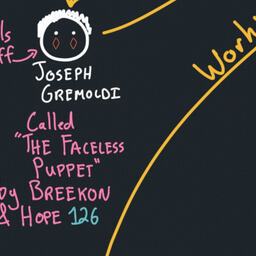 ls
ff
JOSEPH
GREMOLDI
Called
"THE FACELESS
PUPPET"
by BREEKON
& HOPE 126